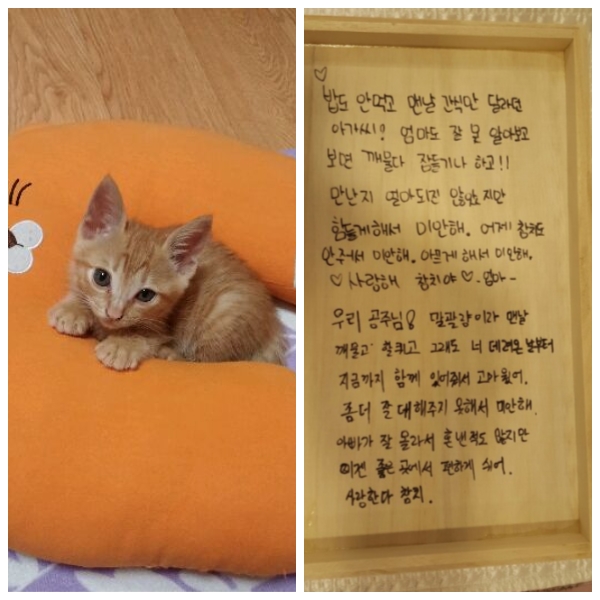 ♡
밥도 안먹고 맨날 간식만 달라던
아가씨! 엄마도 잘 못 알아보고
보면 깨물다 잠들기나 하고!!
만난지 얼마되진 않았지만
힘들게해서 미안해. 어제 참치도
안주어서 미안해. 아프게 해서 미안해.
♡ 사랑해 참치야 ♡ -엄마-
우리 공주님 말괄량이라 맨날
깨물고 할퀴고 그래도 너 데려온 날부터
지금까지 함께 있어줘서 고마웠어.
좀더 잘 대해주지 못해서 미안해.
아빠가 잘 몰라서 혼낸적도 많지만
이젠 좋은 곳에서 편하게 쉬어.
사랑한다 참치.